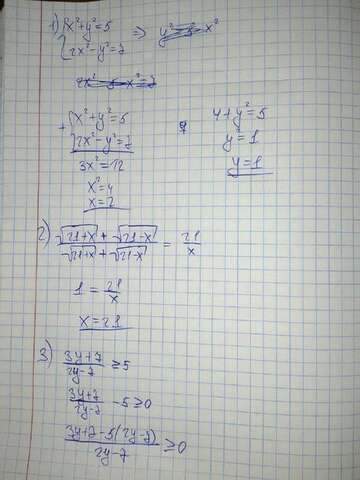 1) { x² + y² = 5 ⇒
{ 2x² - y² = 7
+ { x² + y² = 5
{ 2x² - y² = 7
3x² = 12
x² = 4
x = 2
4 + y² = 5
y² = 1
y = 1
2) (√21+x + √21-x) / (√21+x + √21-x) = 21/x
1 = 21/x
x = 21
3) (3y+7)/(2y-7) ≥ 5
(3y+7)/(2y-7) - 5 ≥ 0
(3y+7-5(2y-7))/(2y-7) ≥ 0